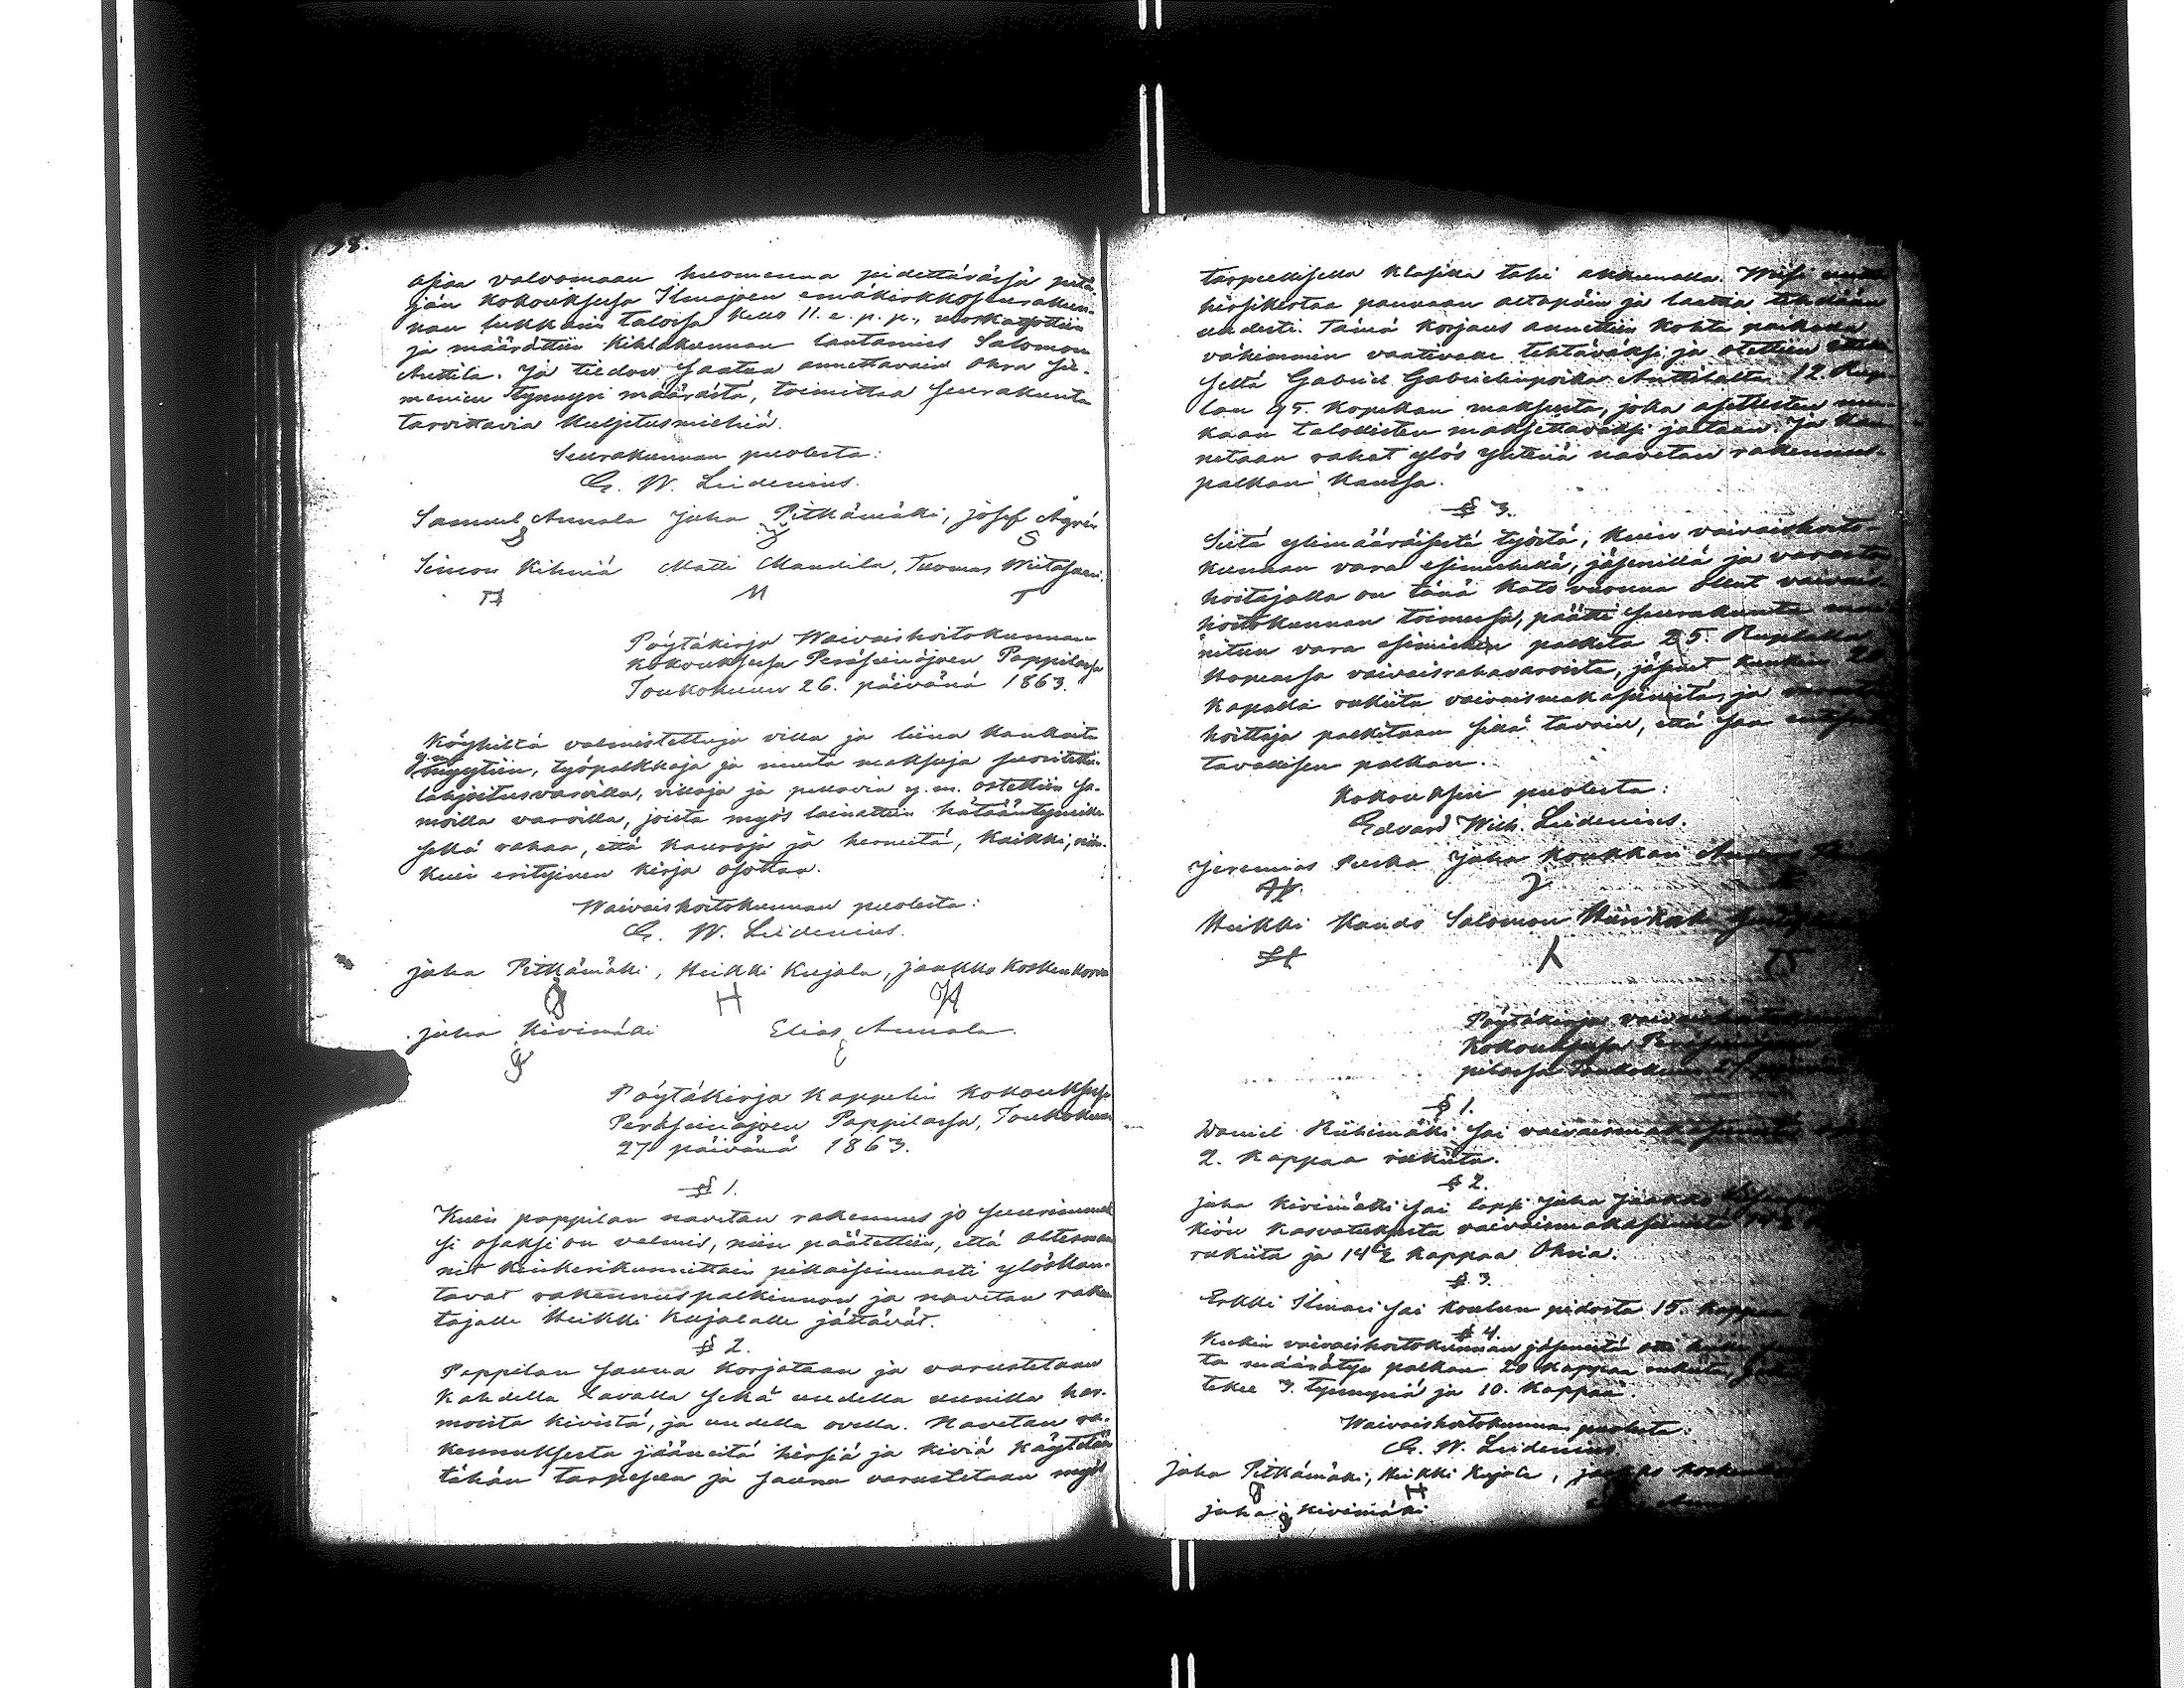 138.
asiaa valvomaan huomenna pidettävässä pitä-
jän kokouksessa Ilmajoen emäkirkkoseurakun-
nan lukkarin talossa kello 11. e. p. p.,
ja määrättiin Kihlakunnan lautamies Salomon
Anttila. Ja tiedon saatua annettavain Ohra sie-
menien tynnyri määrästä, toimittaa seurakunta
tarvittavia kuljetusmiehiä.
Seurakunnan puolesta:
E. W. Lindenius.
Samuel Annala Juha Pitkämäki, Josef Ågrén
Simon Kihniä Matti Mandila, Tuomas Viitasaari.
M T
Pöytäkirja Waivaishoitokunnan
kokouksessa Peräseinäjoen Pappilassa
Toukokuun 26. päivänä 1863.
Köyhiltä valmistettuja villa ja liina kankaita
y. m. myytiin, työpalkkoja ja muita maksuja suoritettiin
lahjoitusvaroilla, villoja ja pellavia y. m. ostettiin sa-
moilla varoilla, joista myös lainattiin hätääntyneille
sekä rahaa, että kauroja ja herneitä, kaikki, niin-
kuin erityinen kirja osottaa.
Waivaishoitokunnan puolesta:
E. W. Lindenius.
Juha Pitkämäki, Heikki Kujala, Jaakko Koskenkorva
H
Juha Kivimäki Elias Annala.
E
Pöytäkirja Kappelin kokouksessa
Peräseinäjoen Pappilassa, Toukokuun
27 päivänä 1863.
§ 1.
Kuin pappilan navetan rakennus jo suurimmak-
si osaksi on valmis, niin päätettiin, että oltermannit
kinkerikunnittain pikaisimmasti ylöskan-
tavat rakennuspalkinnon ja navetan raken-
tajalle Heikki Kujalalle jättävät.
§ 2.
Pappilan sauna korjataan ja varustetaan
kahdella lavalla sekä uudella uunilla har-
moista kivistä, ja uudella ovella. Navetan ra-
kennuksesta jääneitä hirsiä ja kiviä käytetään
tähän tarpeesen ja sauna varustetaan myös
tarpeellisella klasilla tahi akkunalla. Wiisi uutta
hirsikertaa pannaan altapäin ja laattia tehdään
uudesti. Tämä korjaus annettiin kohta paikalla
vähimmin vaativalle tehtäväksi ja otettiin
seltä Gabriel Gabrielinpoika Anttilalta 12. Rup-
lan 95. kopekan maksusta, joka
kaan talollisten maksettavaksi jaetaan. Ja kan-
netaan rahat ylös yhtenä navetan rakennus-
palkan kanssa.
§ 3.
Siitä ylimääräisestä työstä, kuin vaivaishoito-
kunnan vara esimiehellä, jäsenillä ja varaston
hoitajalla on tänä kato vuonna ollut vaivais-
hoitokunnan toimessa, päätti seurakunta mai-
nitun vara esimiehen palkita 25 Ruplalla
Hopeassa vaivaisrahavaroista, jäsenet kunkin 20
kapalla rukiita vaivaismakasiinista, ja varaston
hoittaja palkitaan sillä tavoin, että saa entisen
tavallisen palkan.
Kokouksen puolesta:
Edvard Wilh. Lindenius.
Jeremias Puska Juha Koukkari
Heikki Kando Salomon
Pöytäkirja vaivaishoitokunnan
kokouksessa Peräseinäjoen
pilassa Toukokuun 27
§ 1.
Daniel Riihimäki sai vaivaismakasiinista
2. kappaa rukiita.
§ 2.
Juha Kivimäki sai Juha Jaakko
kiön kasvatuksesta vaivaismakasiinista 14 ½
rukiita ja 14 ½ kappaa Ohria.
§ 3.
Erkki Ilmari sai koulun pidosta 15. kappaa
§ 4.
Kukin vaivaishoitokunnan jäsenistä otti
ta määrätyn palkan 20 kappaa rukiita,
tekee 3. tynnyriä ja 10. kappaa.
Waivaishoitokunnan puolesta:
E. W. Lindenius
Juha Pitkämäki, Heikki Kujala, Jaakko
H
Juha Kivimäki